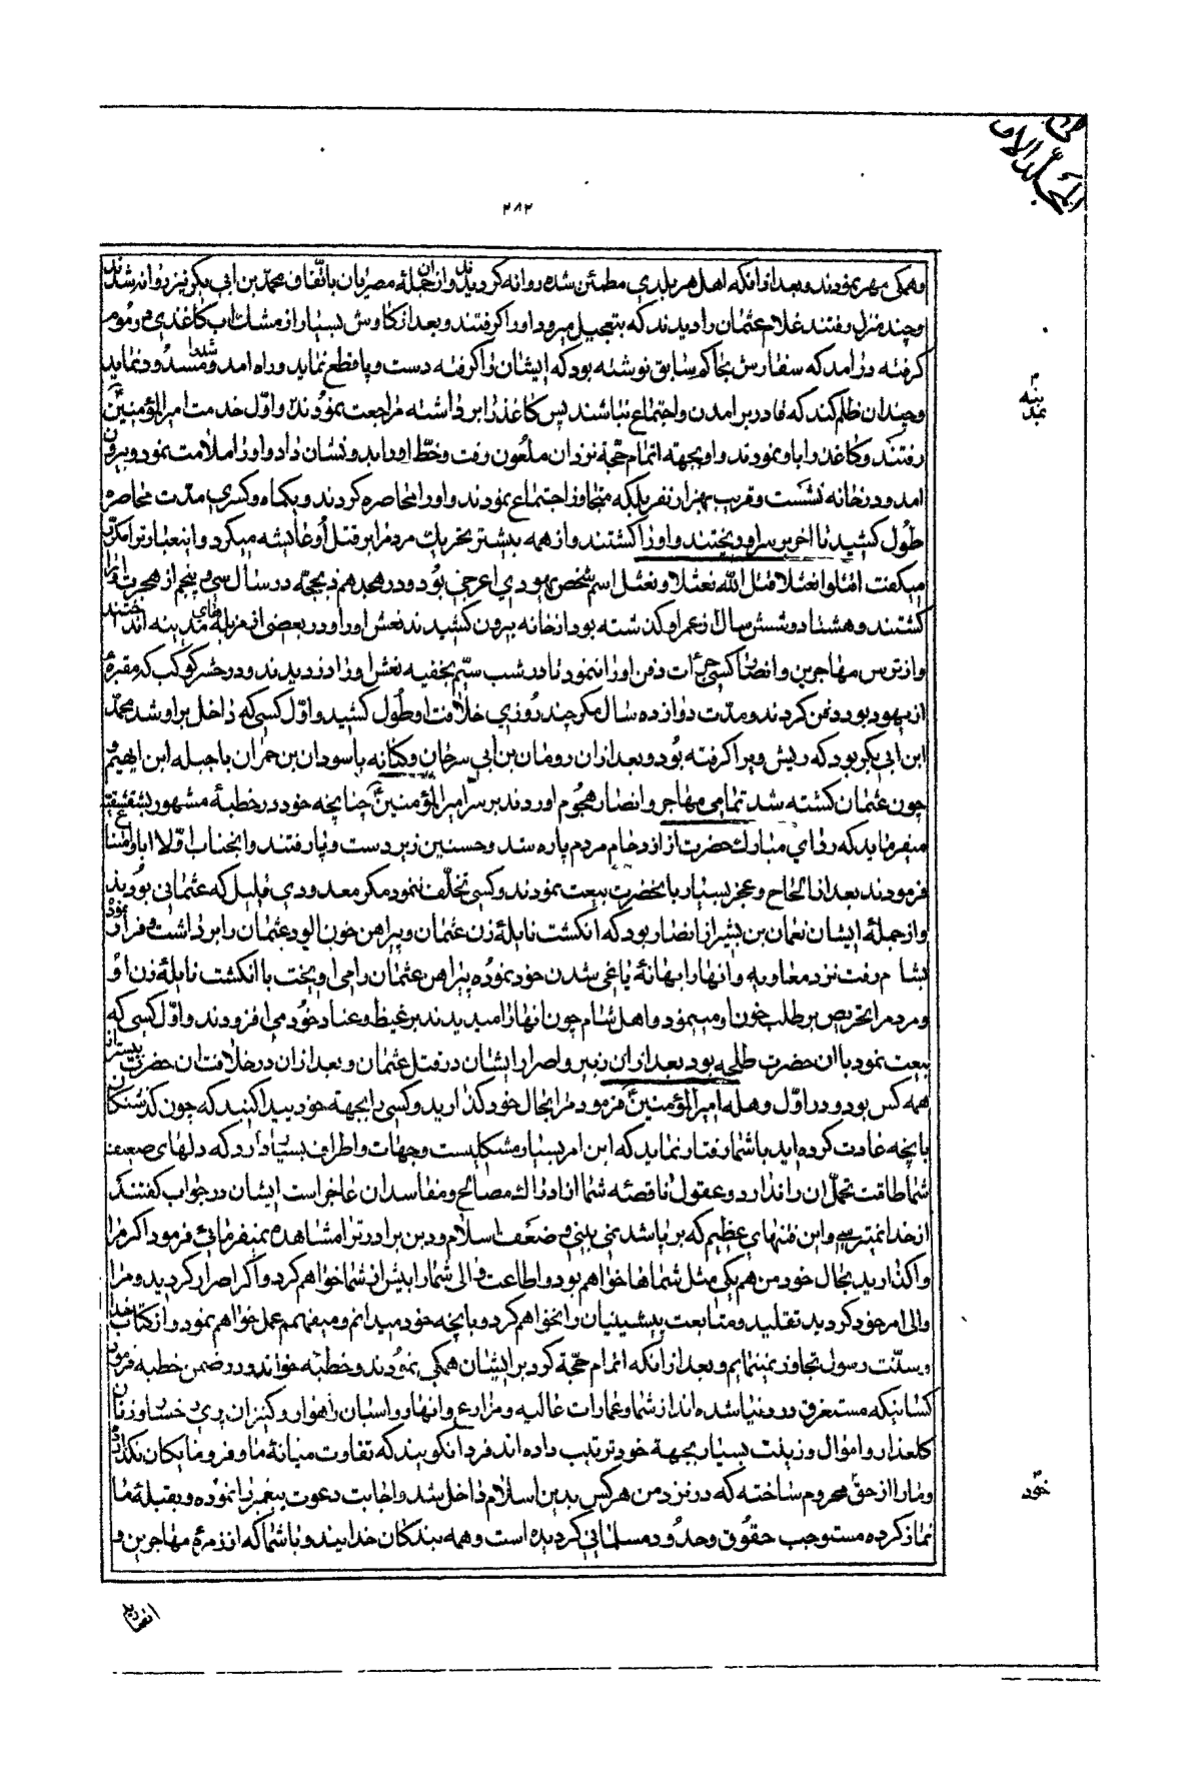 المجلد الاول
۲۸۲
وهمکی مهر نمودند و بعد از آنکه اهل هر بلدی مطمئن شده روانه کردیدند و از انجملهٔ مصریان باتفاق محمد بن ابی بکر نیز روانه شدند
و چند منزل رفتند غلام عثمان را دیدند که بتعجیل میرود او را کرفتند و بعد از کاوش بسیار از مشک اب کاغذی در موم
کرفته در امد که سفارش بحاکم سابق نوشته بود که ایشان را کرفته دست و پا قطع نماید و راه امد و شد مسدود نماید
و چندان ظلم کند که قادر بر امدن و اجتماع نباشند پس کاغذ را برداشته مراجعت نمودند و اول خدمت امیرالمؤمنین
رفتند و کاغذ را باو نمودند و او بجهة اتمام حجة نزد ان ملعون رفت و خط او را بدو نشان داد و او را ملامت نمود و بیرون
امد و در خانه نشست و قریب بهزار نفر بلکه متجاوز اجتماع نمودند و او را محاصره کردند و یکماه و کسری مدت محاصره
طول کشید تا اخر بر سر او ریختند و او را کشتند و از همه بیشتر تحریک مردم را بر قتل او عایشه میکرد و اینعبارت را مکرر
میکفت اقتلوا نعثلا قتل الله نعثلا و نعثل اسم شخص یهودی اعرجی بود و در هجدهم ذیحجه در سال سی و پنجم از هجرت او را
کشتند و هشتاد و شش سال از عمر او کذشته بود از خانه بیرون کشیدند نعش او را و در بعضی از مزبله های مدینه انداختند
و از ترس مهاجرین و انصار کسی جرأت دفن او را ننمود تا در شب سیم بخفیه نعش او را دزدیدند و در حش کوکب که مقبرهٔ
از یهود بود دفن کردند و مدت دوازده سال مکر چند روزی خلافت او طول کشید و اول کسی که داخل بر او شد محمد
ابن ابی بکر بود که ریش ویرا کرفته بود و بعد از ان رومان بن ابی سرحان و کنانه یا سودان بن حمران یا جبله ابن ایهم و
چون عثمان کشته شد تمامی مهاجر و انصار هجوم اوردند بر سر امیرالمؤمنین چنانچه خود در خطبهٔ مشهور بشقشقیه
میفرماید که ردای مبارک حضرت از ازدحام مردم پاره شد و حسنین زیر دست و پا رفتند و انجناب اولا ابا و امتناع
فرمودند بعد از الحاح و عجز بسیار با نحضرت بیعت نمودند و کسی تخلف ننمود مکر معدودی قلیل که عثمانی بودند
و از جملهٔ ایشان نعمان بن بشیر از انصار بود که انکشت نایلهٔ زن عثمان و پیراهن خون الود عثمان را برداشت و فرار نمود
بشام رفت نزد معاویه و انها را بهانهٔ یاغی شدن خود نموده پیراهن عثمان را می اویخت با انکشت نایلهٔ زن او
و مردم را تحریص بر طلب خون او مینمود و اهل شام چون انها را میدیدند بر غیظ و عناد خود می افزودند و اول کسی که
بیعت نمود با ان حضرت طلحه بود بعد از ان زبیر و اصرار ایشان در قتل عثمان و بعد از ان در خلافت ان حضرت بیشتر از
همه کس بود و در اول وهله امیرالمؤمنین فرمود مرا بحال خود کذارید و کسی را بجهة خود پیدا کنید که چون کذشتکان
بانچه عادت کرده اید با شما رفتار نماید که این امر بسیار مشکلیست و جهات و اطراف بسیار دارد که دلهای ضعیف
شما طاقت تحمل ان را ندارد و عقول ناقصه شما از ادراک مصالح و مفاسد ان عاجز است ایشان در جواب کفتند که
از خدا نمیترسی و این فتنهای عظیم که بر پا شد نمی بینی و ضعف اسلام و دین برادرت را مشاهده نمیفرمائی فرمود اکر مرا
واکذارید بحال خود من هم یکی مثل شماها خواهم بود و اطاعت والی شما را بیش از شما خواهم کرد و اکر اصرار کردید و مرا
والی امر خود کردید تقلید و متابعت پیشینیان را نخواهم کرد و بانچه خود میدانم و میفهمم عمل خواهم نمود و از کتاب خدا
و سنت رسول تجاوز نمینمایم و بعد از انکه اتمام حجة کرد بر ایشان همکی نمودند و خطبهٔ خواند و در ضمن خطبه فرمود
کسانیکه مستغرق در دنیا شده اند از شما و عمارات عالیه و مزارع و انهار و اسبان راهوار و کنیزان پری رخسار و زنان
کلعذار و اموال و زینت بسیار بجهة خود ترتیب داده اند فردا نکویند که تفاوت میانهٔ ما و فرومایکان نکذارد
و ما را از حق محروم ساخته که در نزد من هر کس بدین اسلام داخل شد و اجابت دعوت پیغمبر را نموده و بقبلهٔ ما
نماز کرده مستوجب حقوق و حدود مسلمانی کردیده است و همه بندکان خدایند و با شما که از زمرهٔ مهاجرین و
خود
انصارید